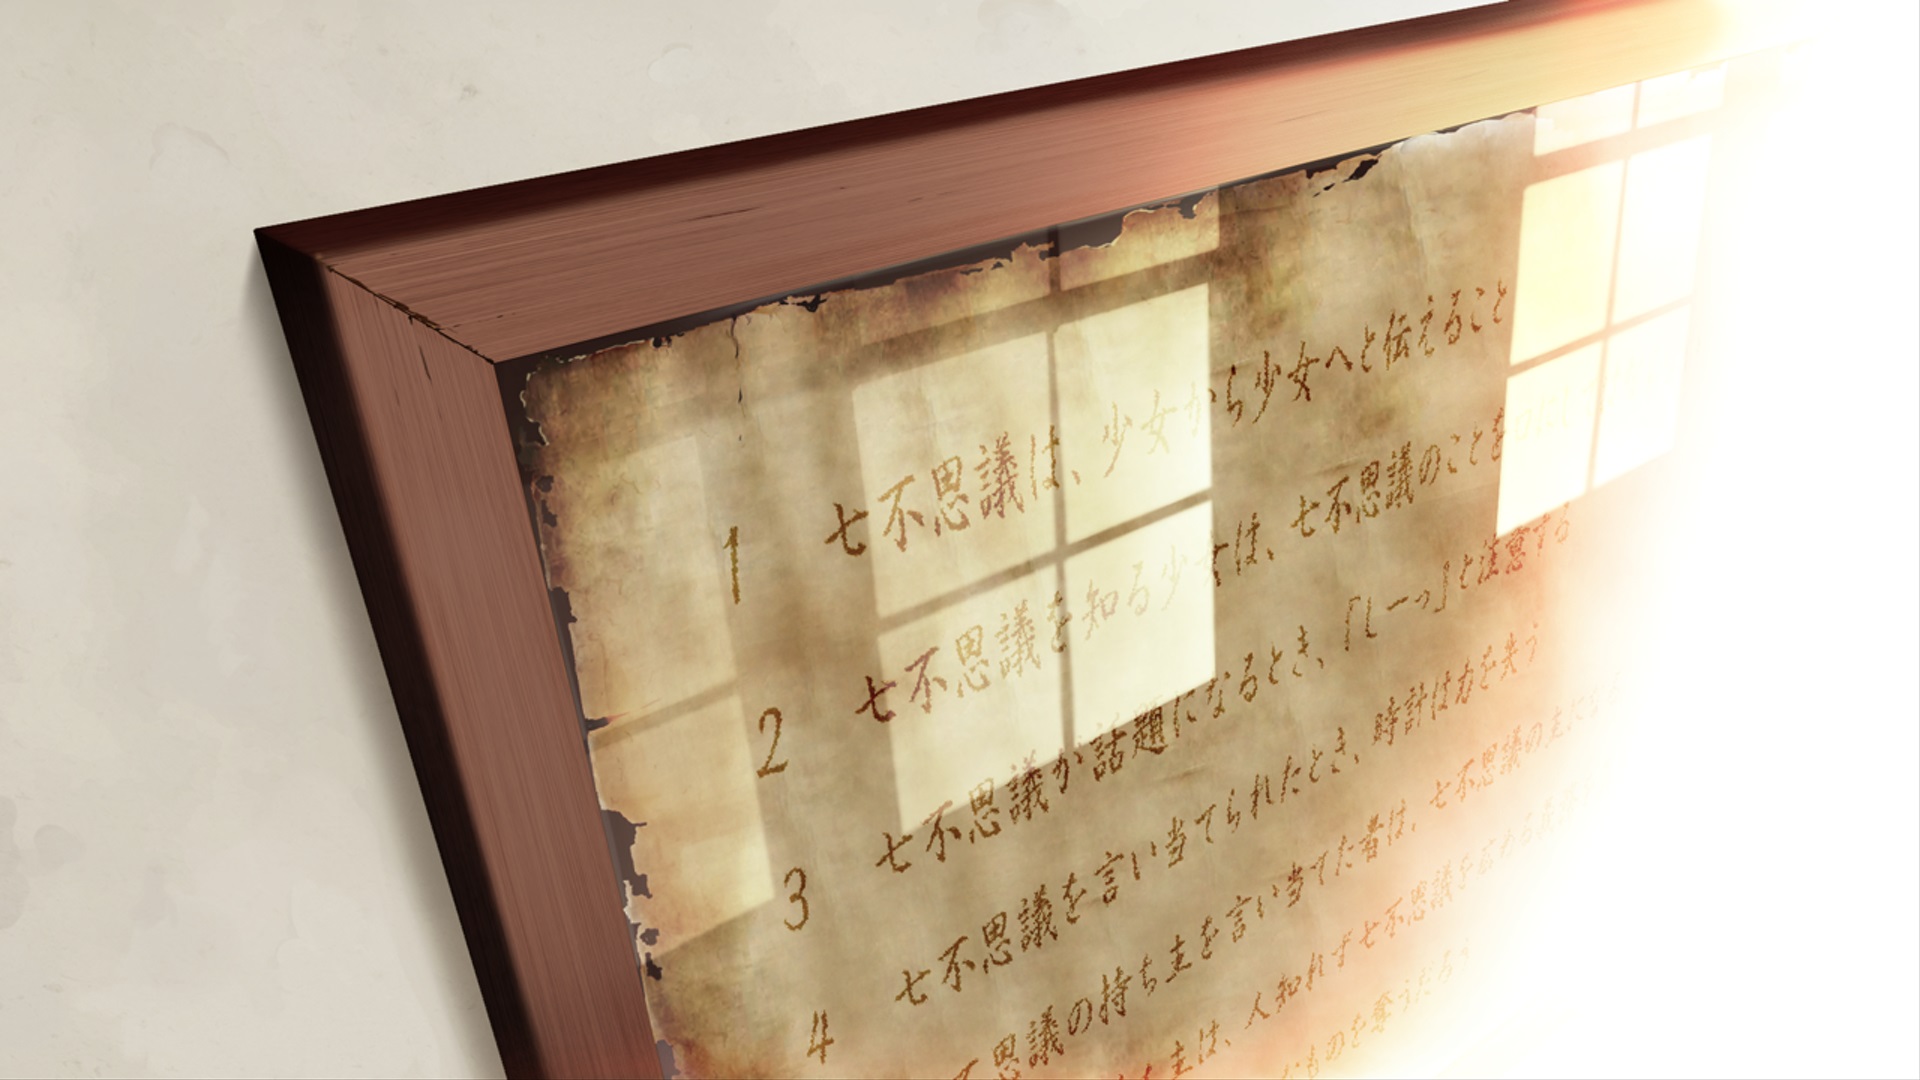 1 七不思議は、少女から少女へと伝えること
2 七不思議を知る少女は、七不思議のことを
3 七不思議が話題になるとき、「しーっ」と注意する
4 七不思議を言い当てられたとき、時計は力を失う
不思議の持ち主を言い当てた者は、七不思議の主にな
主は、人知れず七不思議を忘れる
なものを奪うだろう